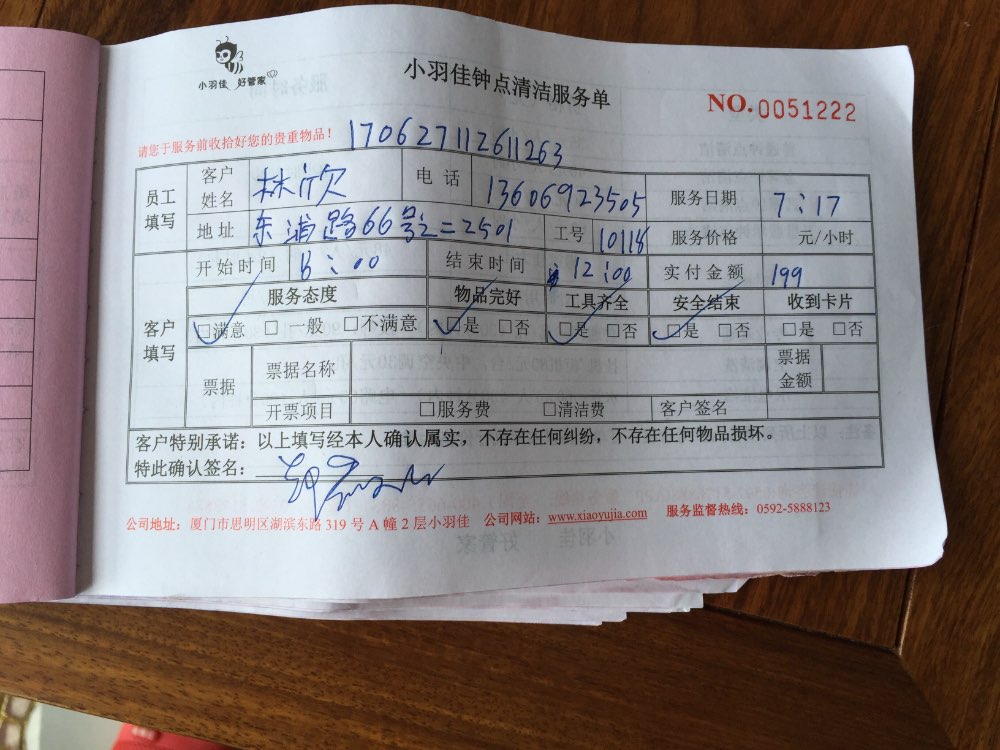 小羽佳 好管家
小羽佳钟点清洁服务单
NO.0051222
请您于服务前收拾好您的贵重物品！
170627112611263
员工填写 客户姓名 林欣 电话 13606923505 服务日期 7:17
地址 东浦路66号二=2501 工号 10118 服务价格 元/小时
客户填写 开始时间 8:00 结束时间 12:00 实付金额 199
服务态度 物品完好 工具齐全 安全结束 收到卡片
□满意 □一般 □不满意 □是 □否 □是 □否 □是 □否 □是 □否
票据 票据名称 票据金额
开票项目 □服务费 □清洁费 客户签名
客户特别承诺：以上填写经本人确认属实，不存在任何纠纷，不存在任何物品损坏。
特此确认签名：
公司地址：厦门市思明区湖滨东路 319 号 A 幢 2 层小羽佳 公司网站：www.xiaoyujia.com 服务监督热线：0592-5888123